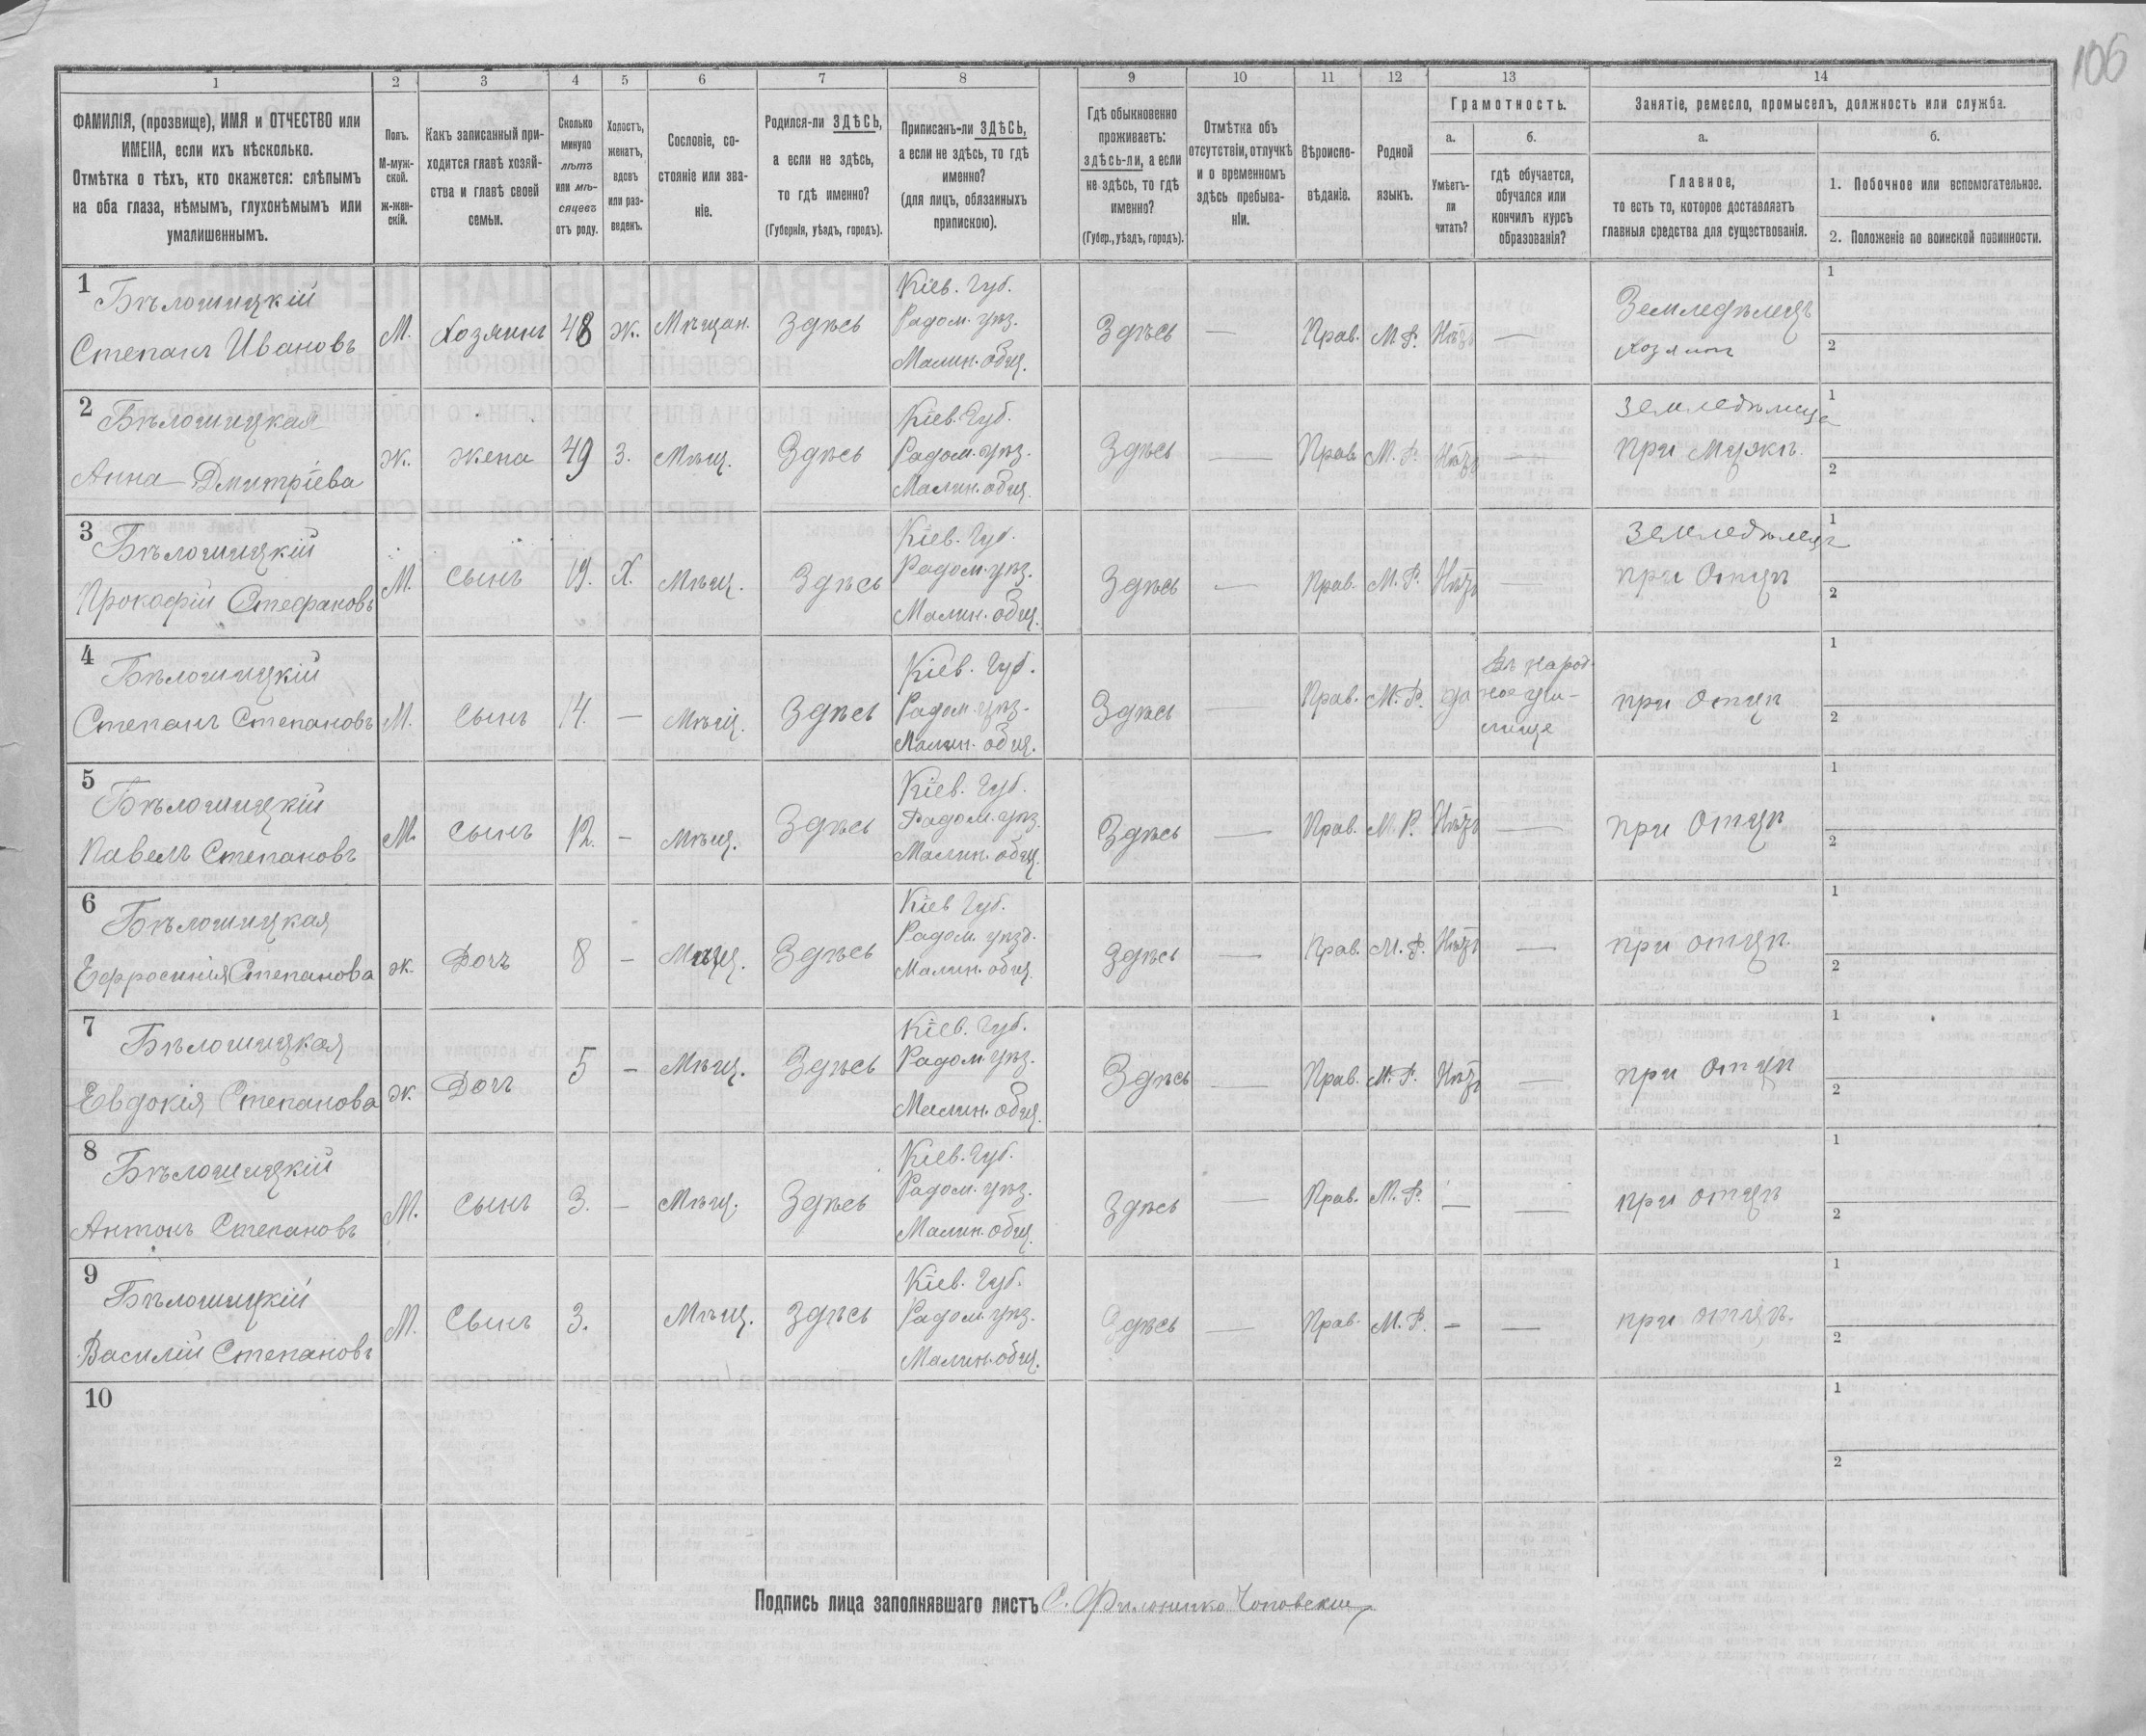 106
1 2 3 4 5 6 7 8 9 10 11 12 13 14
ФАМИЛІЯ, (прозвище), ИМЯ и ОТЧЕСТВО или
ИМЕНА, если ихъ нѣсколько.
Отмѣтка о тѣхъ, кто окажется: слѣпымъ
на оба глаза, нѣмымъ, глухонѣмымъ или
умалишеннымъ.
Полъ.
М-муж-
ской.
ж-жен-
скій.
Какъ записанный при-
ходится главѣ хозяй-
ства и главѣ своей
семьи.
Сколько
минуло
лѣтъ
или мѣ-
сяцевъ
отъ роду.
Холостъ,
женатъ,
вдовъ
или раз-
веденъ.
Сословіе, со-
стояніе или зва-
ніе.
Родился-ли ЗДѢСЬ,
а если не здѣсь,
то гдѣ именно?
(Губернія, уѣздъ, городъ).
Приписанъ-ли ЗДѢСЬ,
а если не здѣсь, то гдѣ
именно?
(для лицъ, обязанныхъ
припискою).
Гдѣ обыкновенно
проживаетъ:
здѣсь-ли, а если
не здѣсь, то гдѣ
именно?
(Губер., уѣздъ, городъ).
Отмѣтка объ
отсутствіи, отлучкѣ
и о временномъ
здѣсь пребыва-
ніи.
Вѣроиспо-
вѣданіе.
Родной
языкъ.
Грамотность.
а.
Умѣетъ-
ли
читать?
б.
гдѣ обучается,
обучался или
кончилъ курсъ
образованія?
Занятіе, ремесло, промыселъ, должность или служба.
а.
Главное,
то есть то, которое доставляетъ
главныя средства для существованія.
б.
1. Побочное или вспомогательное.
2. Положеніе по воинской повинности.
1
Бѣлошицкій
Степанъ Ивановъ
М.
Хозяинъ
48
ж.
Мѣщан.
Здѣсь
Кіев. Губ.
Радом. уѣз.
Малин. общ.
Здѣсь
—
Прав.
М. Р.
Нѣтъ
—
Земледѣлецъ
хозяинъ
1
2
2
Бѣлошицкая
Анна Дмитріева
ж.
жена
49
з.
Мѣщ.
Здѣсь
Кіев. Губ.
Радом. уѣз.
Малин. общ.
Здѣсь
—
Прав.
М. Р.
Нѣтъ
—
земледѣлица
при мужѣ.
1
2
3
Бѣлошицкій
Прокофій Стефановъ
М.
сынъ
19.
Х.
Мѣщ.
Здѣсь
Кіев. Губ.
Радом. уѣз.
Малин. общ.
Здѣсь
—
Прав.
М. Р.
Нѣтъ
—
земледѣлецъ
при Отцѣ
1
2
4
Бѣлошицкій
Степанъ Степановъ
М.
сынъ
14.
—
Мѣщ.
Здѣсь
Кіев. Губ.
Радом. уѣз.
Малин. общ.
Здѣсь
—
Прав.
М. Р.
да
въ народ-
ное учи-
лище
при Отцѣ
1
2
5
Бѣлошицкій
Павелъ Степановъ
М.
сынъ
12.
—
мѣщ.
Здѣсь
Кіев. Губ.
Радом. уѣз.
Малин. общ.
Здѣсь
—
Прав.
М. Р.
Нѣтъ
—
при Отцѣ
1
2
6
Бѣлошицкая
Ефросинія Степанова
ж.
Дочъ
8
—
Мѣщ.
Здѣсь
Кіев Губ.
Радом. уѣзд.
Малин. общ.
Здѣсь
—
Прав.
М. Р.
Нѣтъ
—
при отцѣ.
1
2
7
Бѣлошицкая
Евдокія Степанова
ж.
Дочъ
5
—
Мѣщ.
Здѣсь
Кіев. Губ.
Радом. уѣз.
Малин. общ.
Здѣсь
—
Прав.
М. Р.
Нѣтъ
—
при Отцѣ
1
2
8
Бѣлошицкій
Антонъ Степановъ
М.
сынъ
3.
—
Мѣщ.
Здѣсь
Кіев. Губ.
Радом. уѣз.
Малин. общ.
Здѣсь
—
Прав.
М. Р.
—
—
при отцѣ
1
2
9
Бѣлошицкій
Василій Степановъ
М.
Сынъ
3.
Мѣщ.
Здѣсь
Кіев. Губ.
Радом. уѣз.
Малин. общ.
Здѣсь
—
Прав.
М. Р.
—
—
при отцѣ.
1
2
10
1
2
Подпись лица заполнявшаго листъ С.